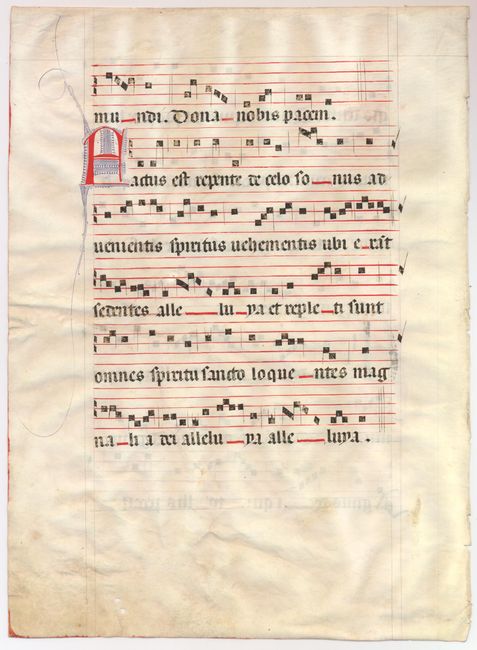 mu_ndi. Dona_nobis pacem.
Factus est repente de celo so_nus ad
uenientis spiritus uehementis ubi e_rãt
sedentes alle_lu_ya et reple_ti sunt
omnes spiritu sancto loque_ntes mag
na_lia dei allelu_ya alle_luya.